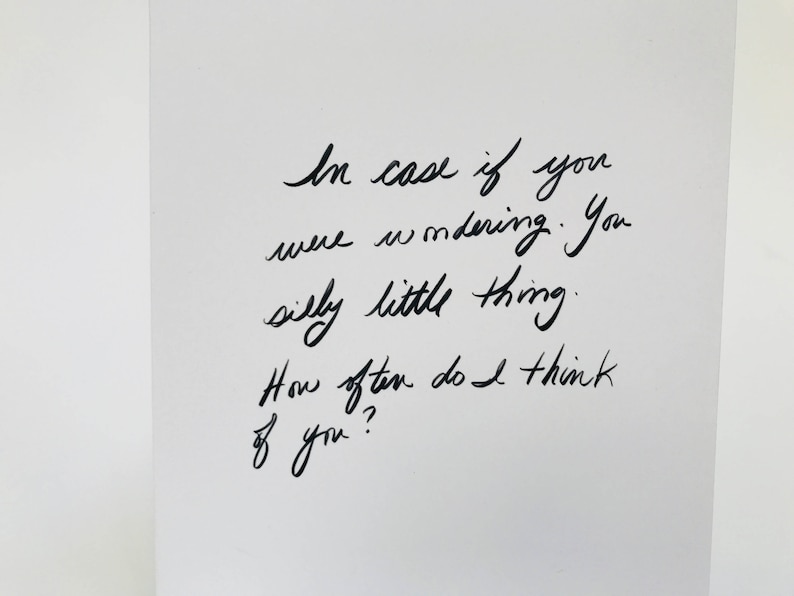 In case if you
were wondering. You
silly little thing.
How often do I think
of you?